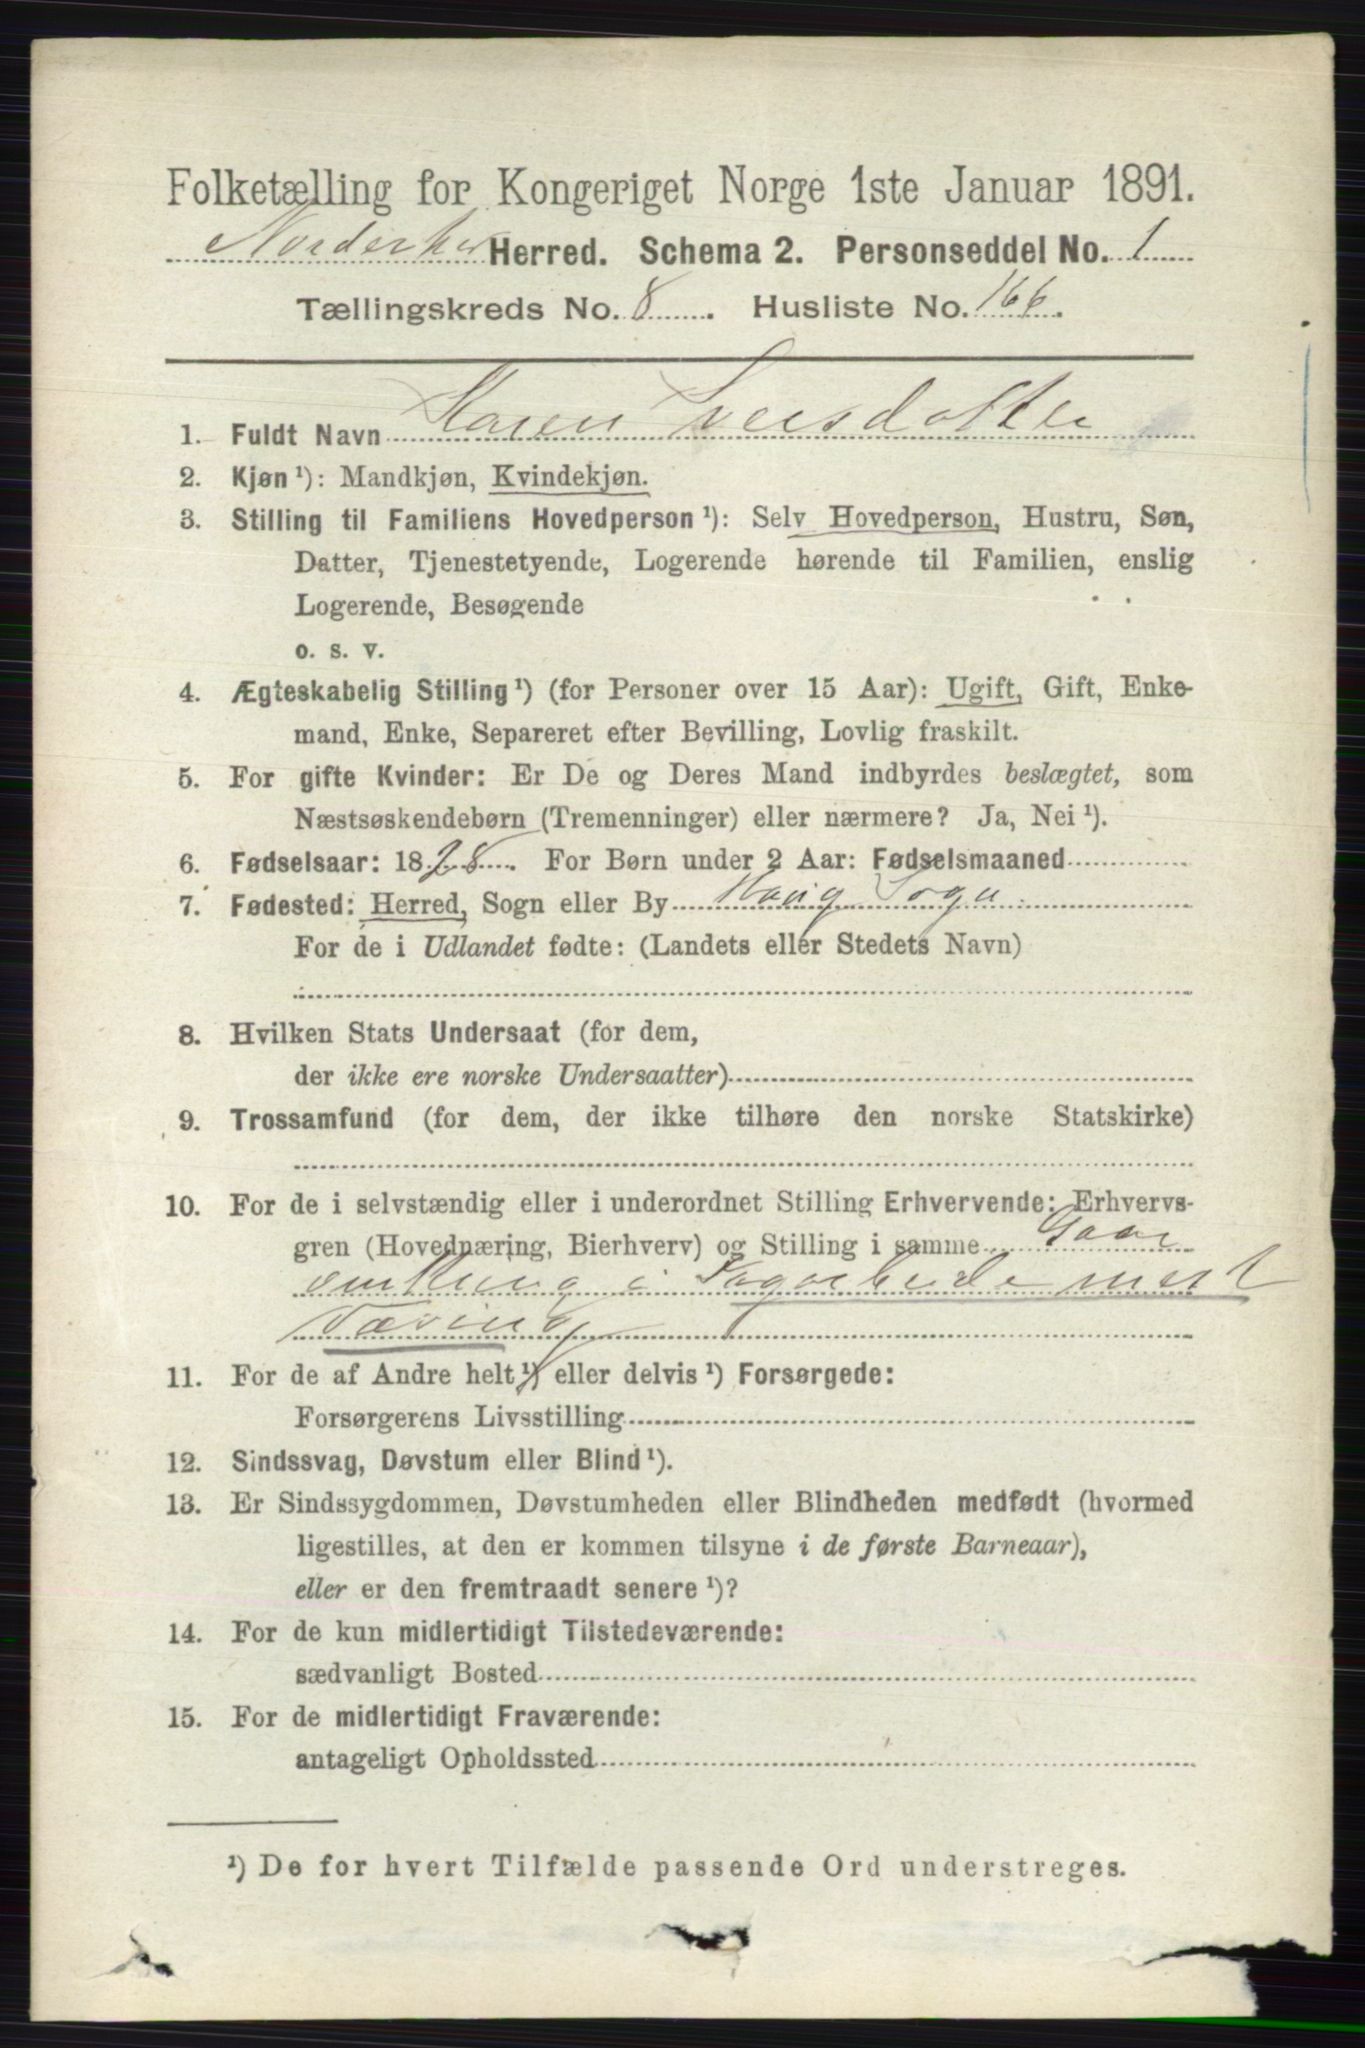 Folketælling for Kongeriget Norge 1ste Januar 1891.
Norderhov Herred. Schema 2. Personseddel No. 1
Tællingskreds No. 8. Husliste No. 166.
1. Fuldt Navn Karen Iversdatter
2. Kjøn ¹): Mandkjøn, Kvindekjøn.
3. Stilling til Familiens Hovedperson ¹): Selv Hovedperson, Hustru, Søn,
Datter, Tjenestetyende, Logerende hørende til Familien, enslig
Logerende, Besøgende
o. s. v.
4. Ægteskabelig Stilling ¹) (for Personer over 15 Aar): Ugift, Gift, Enke-
mand, Enke, Separeret efter Bevilling, Lovlig fraskilt.
5. For gifte Kvinder: Er De og Deres Mand indbyrdes beslægtet, som
Næstsøskendebørn (Tremenninger) eller nærmere? Ja, Nei ¹).
6. Fødselsaar: 1828. For Børn under 2 Aar: Fødselsmaaned
7. Fødested: Herred, Sogn eller By Haug Sogn
For de i Udlandet fødte: (Landets eller Stedets Navn)
8. Hvilken Stats Undersaat (for dem,
der ikke ere norske Undersaatter)
9. Trossamfund (for dem, der ikke tilhøre den norske Statskirke)
10. For de i selvstændig eller i underordnet Stilling Erhvervende: Erhvervs-
gren (Hovednæring, Bierhverv) og Stilling i samme Gaar
omkring i Dagarbeide mest
Væving
11. For de af Andre helt ¹) eller delvis ¹) Forsørgede:
Forsørgerens Livsstilling
12. Sindssvag, Døvstum eller Blind ¹).
13. Er Sindssygdommen, Døvstumheden eller Blindheden medfødt (hvormed
ligestilles, at den er kommen tilsyne i de første Barneaar),
eller er den fremtraadt senere ¹)?
14. For de kun midlertidigt Tilstedeværende:
sædvanligt Bosted
15. For de midlertidigt Fraværende:
antageligt Opholdssted
¹) De for hvert Tilfælde passende Ord understreges.